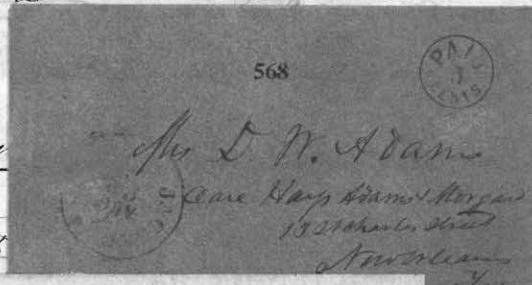 568
PAID
CENTS
Mrs D. W. Adams
Care Hays Adams & Morgan
13 St Charles Street
New Orleans